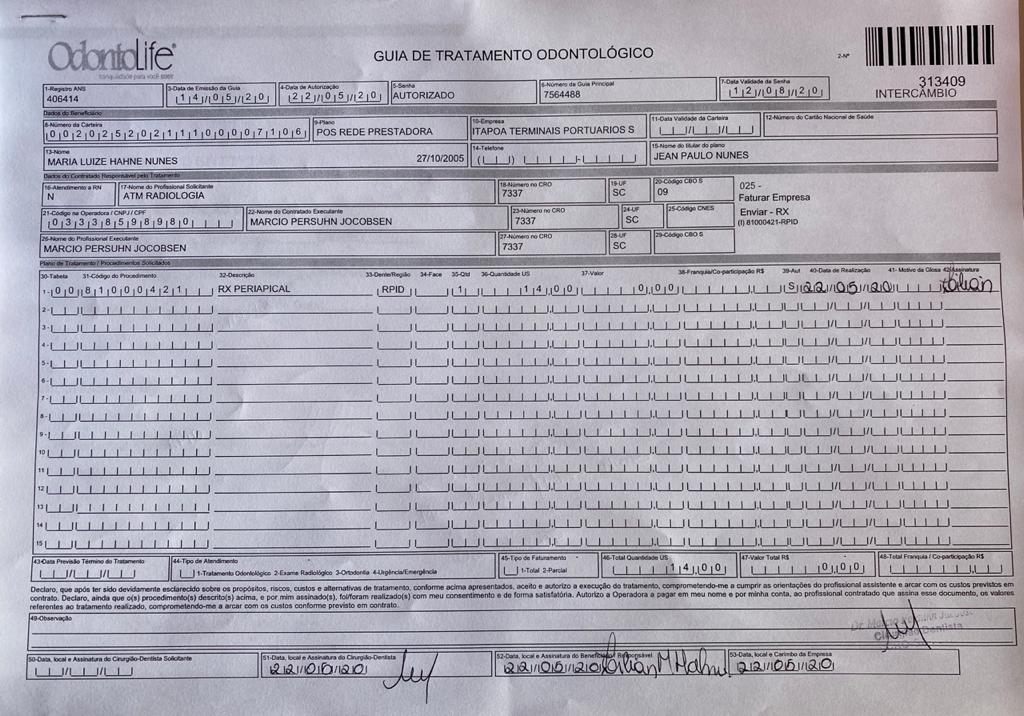 OdontoLife®
tranquilidade para você sorrir
GUIA DE TRATAMENTO ODONTOLÓGICO
2-Nº
313409
INTERCÂMBIO
1-Registro ANS 406414
3-Data de Emissão da Guia 14/05/20
4-Data de Autorização 22/05/20
5-Senha AUTORIZADO
6-Número da Guia Principal 7564488
7-Data Validade da Senha 12/08/20
Dados do Beneficiário
8-Número da Carteira 00202520211100007106
9-Plano POS REDE PRESTADORA
10-Empresa ITAPOA TERMINAIS PORTUARIOS S
11-Data Validade da Carteira
12-Número do Cartão Nacional de Saúde
13-Nome MARIA LUIZE HAHNE NUNES 27/10/2005
14-Telefone
15-Nome do titular do plano JEAN PAULO NUNES
Dados do Contratado Responsável pelo Tratamento
16-Atendimento a RN N
17-Nome do Profissional Solicitante ATM RADIOLOGIA
18-Número no CRO 7337
19-UF SC
20-Código CBO S 09
025 -
Faturar Empresa
Enviar - RX
(I) 81000421-RPID
21-Código na Operadora / CNPJ / CPF 0338598980
22-Nome do Contratado Executante MARCIO PERSUHN JOCOBSEN
23-Número no CRO 7337
24-UF SC
25-Código CNES
26-Nome do Profissional Executante MARCIO PERSUHN JOCOBSEN
27-Número no CRO 7337
28-UF SC
29-Código CBO S
Plano de Tratamento / Procedimentos Solicitados
30-Tabela 31-Código do Procedimento 32-Descrição 33-Dente/Região 34-Face 35-Qtd 36-Quantidade US 37-Valor 38-Franquia/Co-participação R$ 39-Aut 40-Data de Realização 41- Motivo da Glosa 42-Assinatura
1- 00 81000421 RX PERIAPICAL RPID 1 14,00 0,00 S 22/05/20 Lilian
2-
3-
4-
5-
6-
7-
8-
9-
10
11
12
13
14
15
43-Data Previsão Término do Tratamento
44-Tipo de Atendimento 1-Tratamento Odontológico 2-Exame Radiológico 3-Ortodontia 4-Urgência/Emergência
45-Tipo de Faturamento 1-Total 2-Parcial
46-Total Quantidade US 14,00
47-Valor Total R$ 0,00
48-Total Franquia / Co-participação R$
Declaro, que após ter sido devidamente esclarecido sobre os propósitos, riscos, custos e alternativas de tratamento, conforme acima apresentados, aceito e autorizo a execução do tratamento, comprometendo-me a cumprir as orientações do profissional assistente e arcar com os custos previstos em
contrato. Declaro, ainda que o(s) procedimento(s) descrito(s) acima, e por mim assinado(s), foi/foram realizado(s) com meu consentimento e de forma satisfatória. Autorizo a Operadora a pagar em meu nome e por minha conta, ao profissional contratado que assina esse documento, os valores
referentes ao tratamento realizado, comprometendo-me a arcar com os custos conforme previsto em contrato.
49-Observação
50-Data, local e Assinatura do Cirurgião-Dentista Solicitante
51-Data, local e Assinatura do Cirurgião-Dentista 22/05/20
52-Data, local e Assinatura do Beneficiário / Responsável 22/05/20 Lilian M Hahne
53-Data, local e Carimbo da Empresa 22/05/20